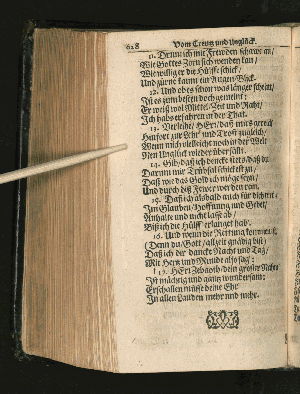 628 Vom Creutz und Unglück.
11. Drum ich mit Frewden schawe an/
Wie Gottes Zorn sich wenden kan/
Wie willig er die Hülffe schick/
Und zürnt kaum ein Augen-Blick.
12. Und ob es schon was länger scheint/
Ist es zum besten doch gemeint:
Er weiß wol Mittel/ Zeit und Raht/
Ich habs erfahren in der That.
13. Verleihe/ HErr/ daß mirs gereich
Hinfort zur Lehr' und Trost zugleich/
Wenn mich vielleicht noch in der Welt
Ein Unglück wieder überfällt.
14. Gib/ daß ich dencke stets/ daß du
Darum mir Trübsal schickest zu/
Daß wie das Gold ich möge seyn/
Und durch diß Fewer werden rein.
15. Daß ich alsbald auch für dich trit/
Im Glauben/ Hoffnung und Gebet/
Anhalt und nicht lasse ab/
Biß ich die Hülff' erlanget hab'.
16. Und wenn die Rettung kommen ist/
(Denn du/ Gott/ allzeit gnädig bist)
Daß ich dir dancke Nacht und Tag/
Mit Hertz und Munde also sag':
17. HErr Zebaoth/ dein grosser Nahm
Ist mächtig und gantz wundersam:
Erschallen müsse deine Ehr'
In allen Landen mehr und mehr.